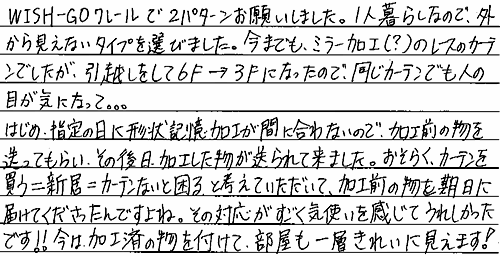 WISH-GOクレールで2パターンお願いしました。1人暮らしなので、外
から見えないタイプを選びました。今までも、ミラー加工(?)のレースのカーテ
ンでしたが、引越しをして6F→3Fになったので、同じカーテンでも人の
目が気になって。。。
はじめ、指定の日に形状記憶加工が間に合わないので、加工前の物を
送ってもらい、その後日、加工した物が送られて来ました。おそらく、カーテンを
買う=新居=カーテンないと困ると考えていただいて、加工前の物を期日に
届けてくださったんですよね。その対応がすごく気使いを感じてうれしかった
です!!今は、加工済の物を付けて、部屋も一層きれいに見えます!